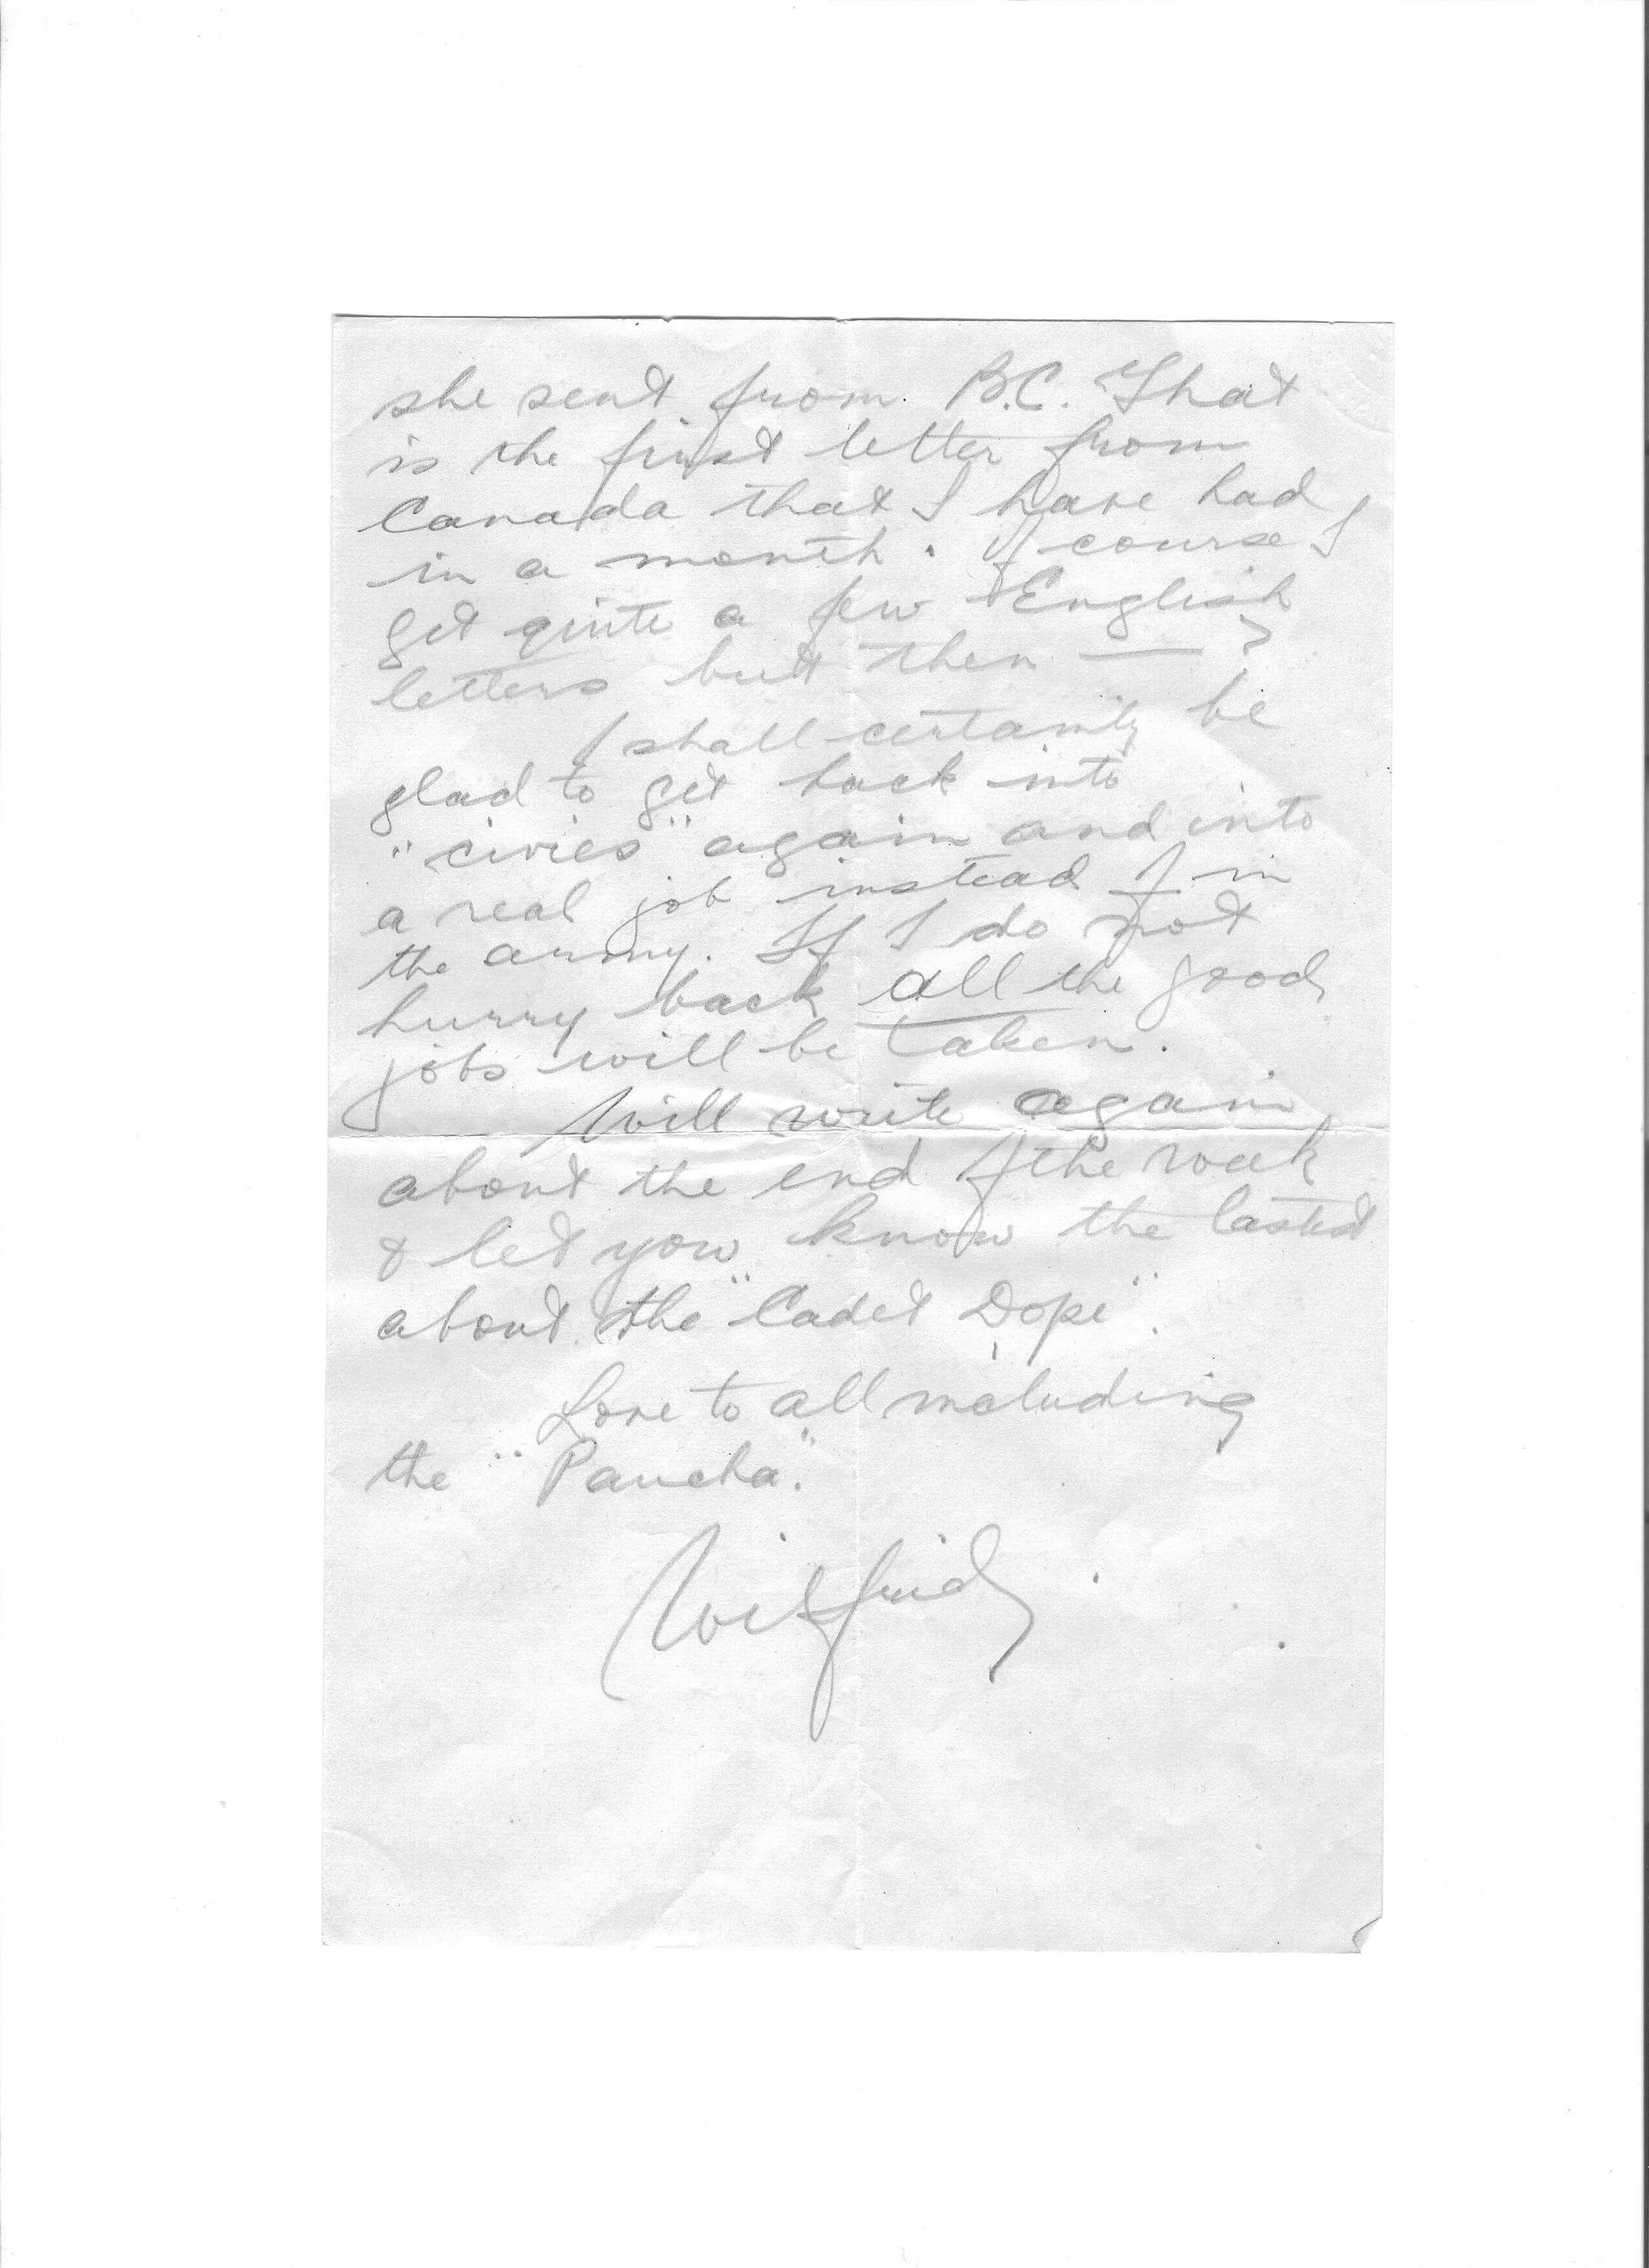 she sent from B.C. That
is the first letter from
Canada that I have had
in a month. Of course I
get quite a few English
letters but then — ?
I shall certainly be
glad to get back into
"civies" again and into
a real job instead of in
the army. If I do not
hurry back all the good
jobs will be taken.
Will write again
about the end of the week
& let you know the lastest
about the "Cadet Dope".
Love to all including
the "Pancha."
Wilfrid